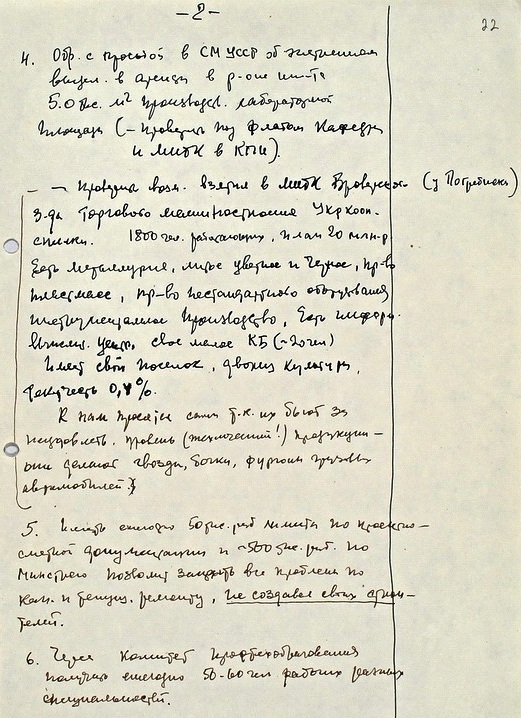 – 2 –
22
4. Обр. с просьбой в СМ УССР об
выдел. в аренду в р-оне ин-та
5.0 тыс. м² производств. лабораторной
площади (– проверить под флагом кафедры
и МНТК в КПИ).
– – Проверить возм. взятия в МНТК (у Погребиски)
з-да торгового машиностроения Укркооп-
спилки. 1800 чел. работающих, план 20 млн. р
Есть металлургия, литье цветное и черное, пр-во
пластмасс, пр-во нестандартного оборудования
инструментальное производство, есть информ.
вычислит. центр, свое малое КБ (~20 чел)
Имеет свой поселок, дворец культуры,
текучесть 0,4%.
К нам просятся сами т.к. их бьют за
неудовлетв. уровень (технический!) продукции –
они делают гвозди, бочки, фургоны грузовых
автомобилей
5. Иметь ежегодно 50 тыс. руб лимита по проектно-
сметной документации и ~500 тыс. руб. по
Минстрою позволит закрыть все проблемы по
кап. и текущ. ремонту, не создавая своих строи-
телей.
6. Через Комитет профтехобразования
получать ежегодно 50-60 чел рабочих разных
специальностей.